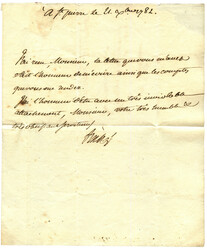 a St pierre le 21 9bre 1782.
J'ai reçu, Monsieur, la lettre que vous m'avez
fait l'honneur de m'écrire ainsi que les comptes
que vous
J'ai l'honneur d'être avec un très inviolable
attachement, Monsieur, votre très humble et
très obéissant serviteur